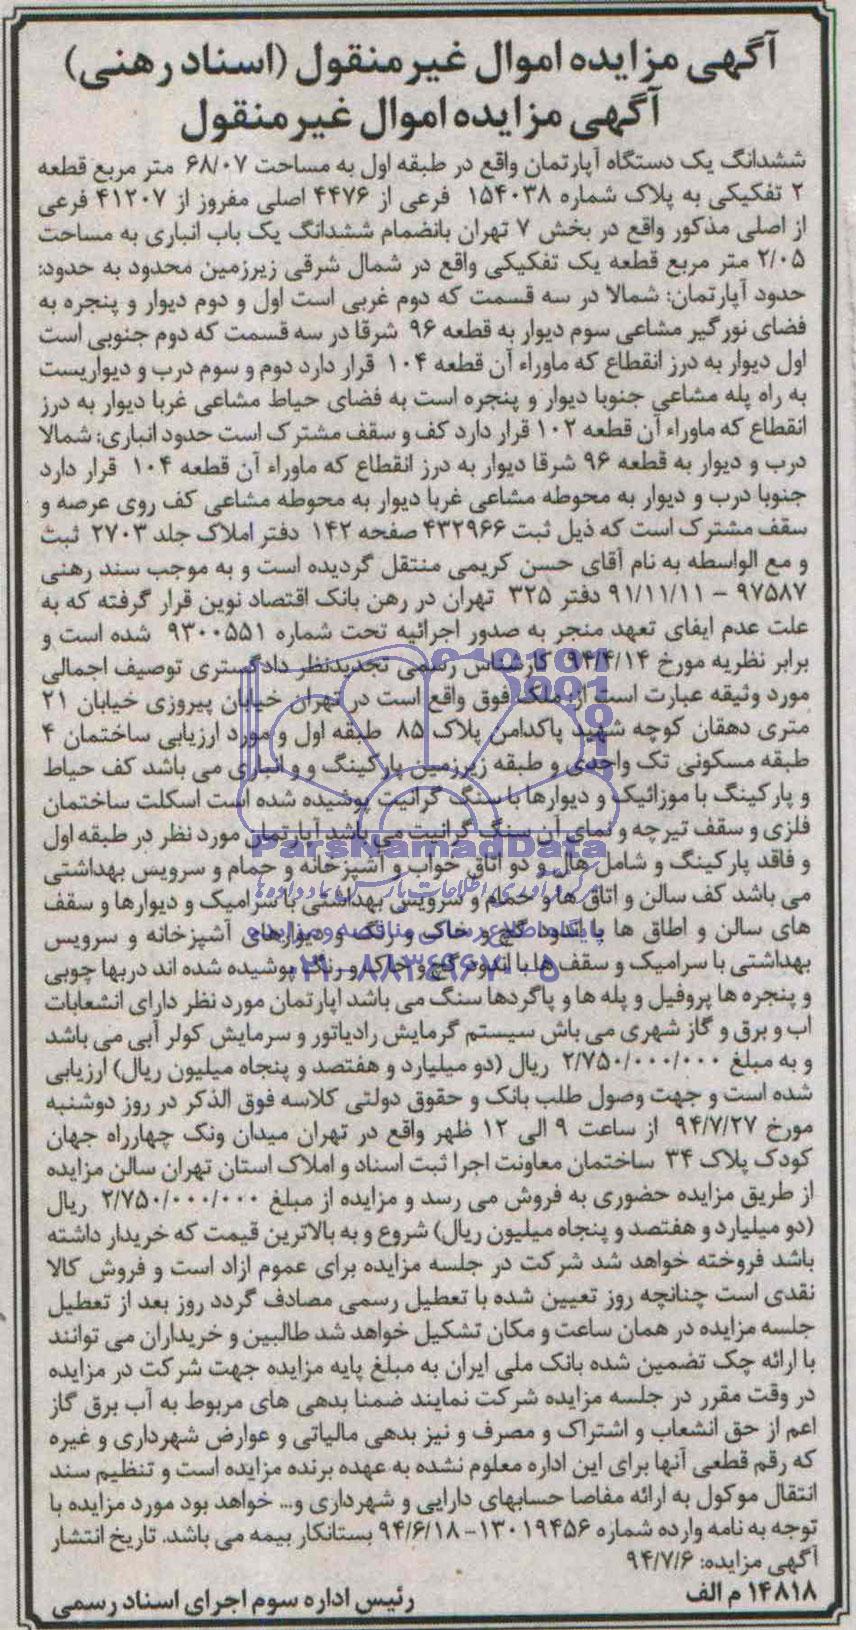 آگهی مزایده اموال غیرمنقول (اسناد رهنی)
آگهی مزایده اموال غیرمنقول
ششدانگ یک دستگاه آپارتمان واقع در طبقه اول به مساحت ۶۸/۰۷ متر مربع قطعه
۲ تفکیکی به پلاک شماره ۱۵۴۰۳۸ فرعی از ۴۴۷۶ اصلی مفروز از ۴۱۲۰۷ فرعی
از اصلی مذکور واقع در بخش ۷ تهران بانضمام ششدانگ یک باب انباری به مساحت
۲/۰۵ متر مربع قطعه یک تفکیکی واقع در شمال شرقی زیرزمین محدود به حدود:
حدود آپارتمان: شمالا در سه قسمت که دوم غربی است اول و دوم دیوار و پنجره به
فضای نورگیر مشاعی سوم دیوار به قطعه ۹۶ شرقا در سه قسمت که دوم جنوبی است
اول دیوار به درز انقطاع که ماوراء آن قطعه ۱۰۴ قرار دارد دوم و سوم درب و دیواریست
به راه پله مشاعی جنوبا دیوار و پنجره است به فضای حیاط مشاعی غربا دیوار به درز
انقطاع که ماوراء آن قطعه ۱۰۲ قرار دارد کف و سقف مشترک است حدود انباری: شمالا
درب و دیوار به قطعه ۹۶ شرقا دیوار به درز انقطاع که ماوراء آن قطعه ۱۰۴ قرار دارد
جنوبا درب و دیوار به محوطه مشاعی غربا دیوار به محوطه مشاعی کف روی عرصه و
سقف مشترک است که ذیل ثبت ۴۳۲۹۶۶ صفحه ۱۴۲ دفتر املاک جلد ۲۷۰۳ ثبت
و مع الواسطه به نام آقای حسن کریمی منتقل گردیده است و به موجب سند رهنی
۹۷۵۸۷ - ۹۱/۱۱/۱۱ دفتر ۳۲۵ تهران در رهن بانک اقتصاد نوین قرار گرفته که به
علت عدم ایفای تعهد منجر به صدور اجرائیه تحت شماره ۹۳۰۰۵۵۱ شده است و
برابر نظریه مورخ ۹۴/۴/۱۴ کارشناس رسمی تجدیدنظر دادگستری توصیف اجمالی
مورد وثیقه عبارت است از: ملک فوق واقع است در تهران خیابان پیروزی خیابان ۲۱
متری دهقان کوچه شهید پاکدامن پلاک ۸۵ طبقه اول و مورد ارزیابی ساختمان ۴
طبقه مسکونی تک واحدی و طبقه زیرزمین پارکینگ و و انباری می باشد کف حیاط
و پارکینگ با موزائیک و دیوارها با سنگ گرانیت پوشیده شده است اسکلت ساختمان
فلزی و سقف تیرچه و نمای آن سنگ گرانیت می باشد آپارتمان مورد نظر در طبقه اول
و فاقد پارکینگ و شامل هال و دو اتاق خواب و آشپزخانه و حمام و سرویس بهداشتی
می باشد کف سالن و اتاق ها و حمام و سرویس بهداشتی با سرامیک و دیوارها و سقف
های سالن و اطاق ها با اندود گچ و خاک و رنگ و دیوارهای آشپزخانه و سرویس
بهداشتی با سرامیک و سقف ها با اندود گچ و خاک و رنگ پوشیده شده اند دربها چوبی
و پنجره ها پروفیل و پله ها و پاگردها سنگ می باشد اپارتمان مورد نظر دارای انشعابات
اب و برق و گاز شهری می باش سیستم گرمایش رادیاتور و سرمایش کولر آبی می باشد
و به مبلغ ۲/۷۵۰/۰۰۰/۰۰۰ ریال (دو میلیارد و هفتصد و پنجاه میلیون ریال) ارزیابی
شده است و جهت وصول طلب بانک و حقوق دولتی کلاسه فوق الذکر در روز دوشنبه
مورخ ۹۴/۷/۲۷ از ساعت ۹ الی ۱۲ ظهر واقع در تهران میدان ونک چهارراه جهان
کودک پلاک ۳۴ ساختمان معاونت اجرا ثبت اسناد و املاک استان تهران سالن مزایده
از طریق مزایده حضوری به فروش می رسد و مزایده از مبلغ ۲/۷۵۰/۰۰۰/۰۰۰ ریال
(دو میلیارد و هفتصد و پنجاه میلیون ریال) شروع و به بالاترین قیمت که خریدار داشته
باشد فروخته خواهد شد شرکت در جلسه مزایده برای عموم ازاد است و فروش کالا
نقدی است چنانچه روز تعیین شده با تعطیل رسمی مصادف گردد روز بعد از تعطیل
جلسه مزایده در همان ساعت و مکان تشکیل خواهد شد طالبین و خریداران می توانند
با ارائه چک تضمین شده بانک ملی ایران به مبلغ پایه مزایده جهت شرکت در مزایده
در وقت مقرر در جلسه مزایده شرکت نمایند ضمنا بدهی های مربوط به آب برق گاز
اعم از حق انشعاب و اشتراک و مصرف و نیز بدهی مالیاتی و عوارض شهرداری و غیره
که رقم قطعی آنها برای این اداره معلوم نشده به عهده برنده مزایده است و تنظیم سند
انتقال موکول به ارائه مفاصا حسابهای دارایی و شهرداری و... خواهد بود مورد مزایده با
توجه به نامه وارده شماره ۱۳۰۱۹۴۵۶-۹۴/۶/۱۸ بستانکار بیمه می باشد. تاریخ انتشار
آگهی مزایده: ۹۴/۷/۶
۱۴۸۱۸ م الف
رئیس اداره سوم اجرای اسناد رسمی
ParsNamadData
پایگاه اطلاع رسانی مناقصه و مزایده
۰۲۱-۸۸۳۴۹۶۷۰-۵